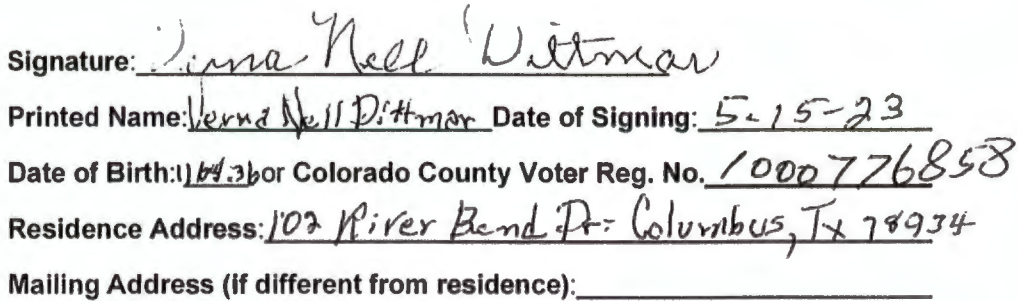 Signature: Verna Nell Dittmar
Printed Name: Verna Nell Dittmar Date of Signing: 5-15-23
Date of Birth: or Colorado County Voter Reg. No. 1000776858
Residence Address: 102 River Bend Dr. Columbus, Tx 78934
Mailing Address (if different from residence):